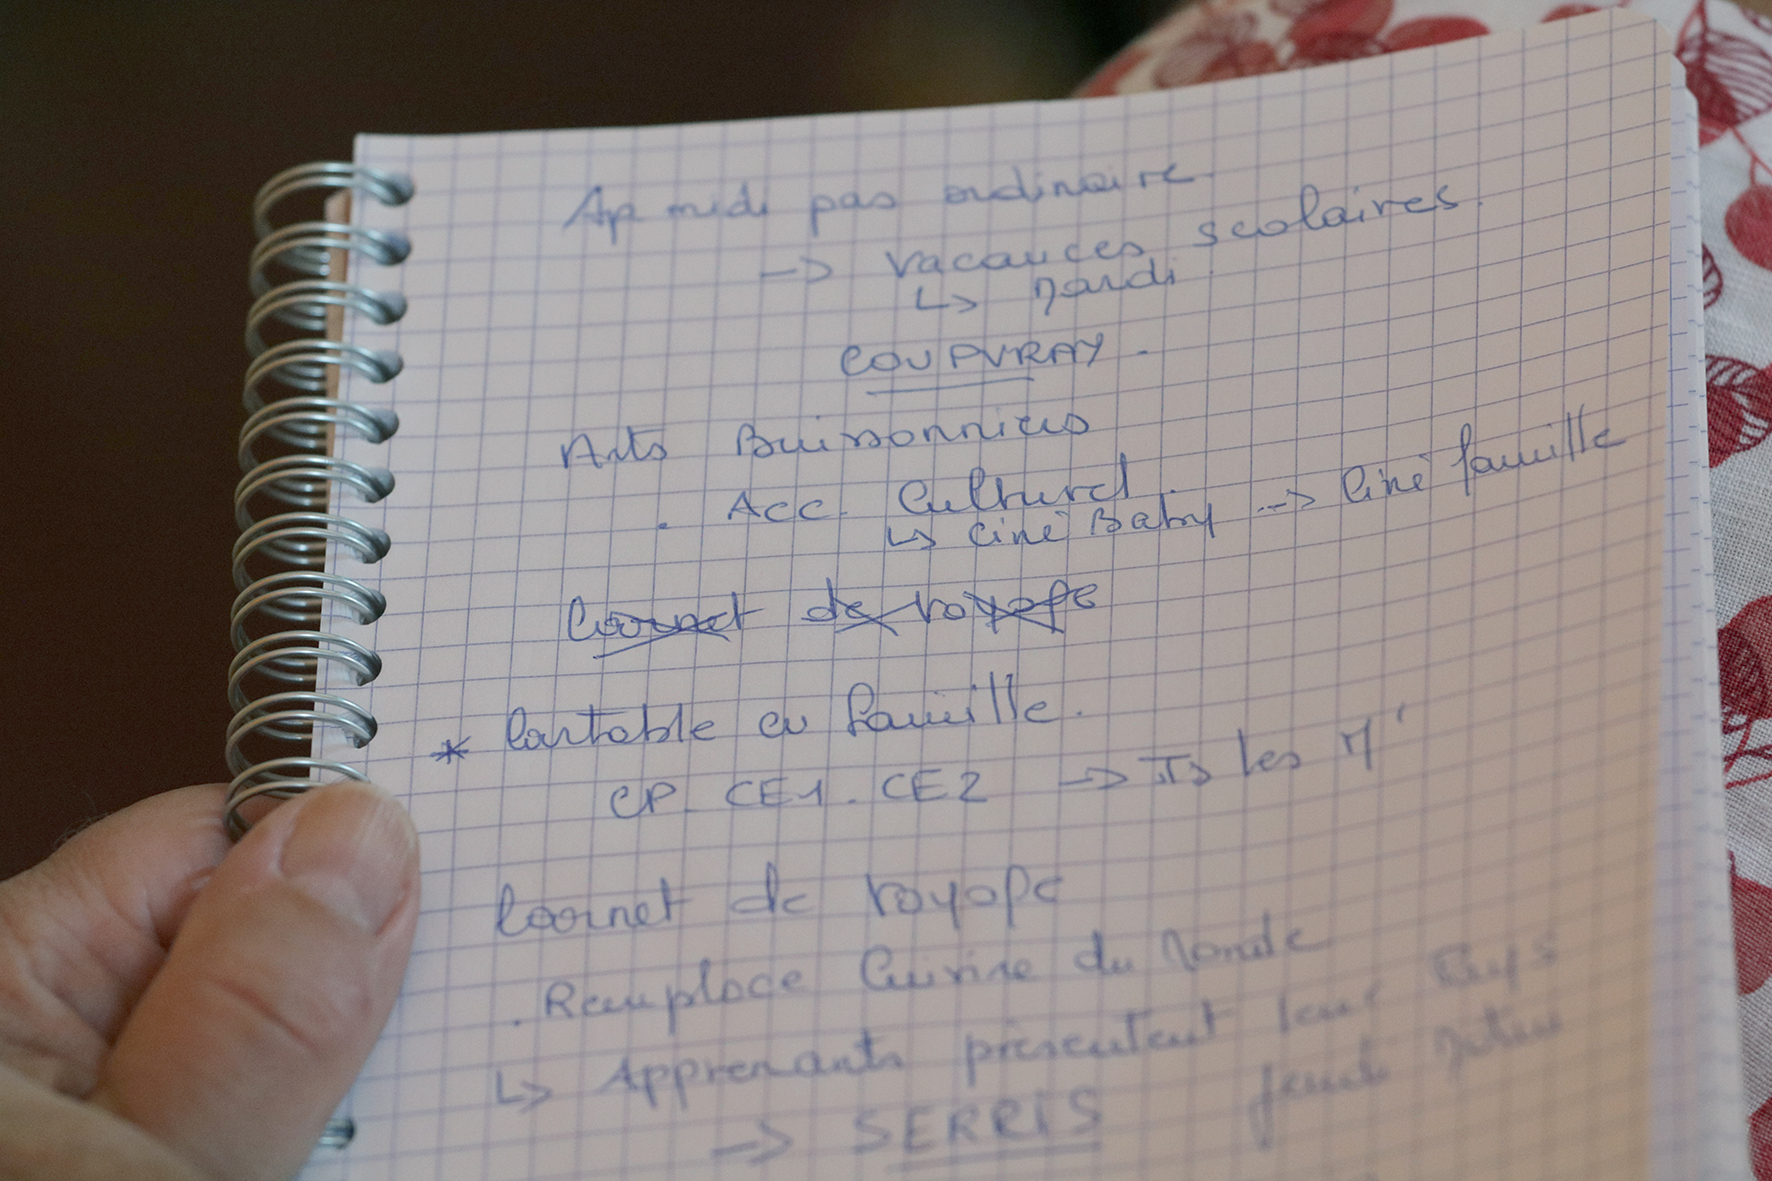 Ap midi pas ordinaire
-> vacances scolaires.
↳ Mardi
COUPVRAY -
Arts Buissonniers
. Acc. Culturel.
↳ Ciné Baby --> Ciné famille
Carnet de voyage
* Cartable en famille.
CP_ CE1. CE2 -> Ts les M'
Carnet de voyage
. Remplace Cuisine du Monde
↳ Apprenants présentent leur Pays
-> SERRIS jeudi Matin